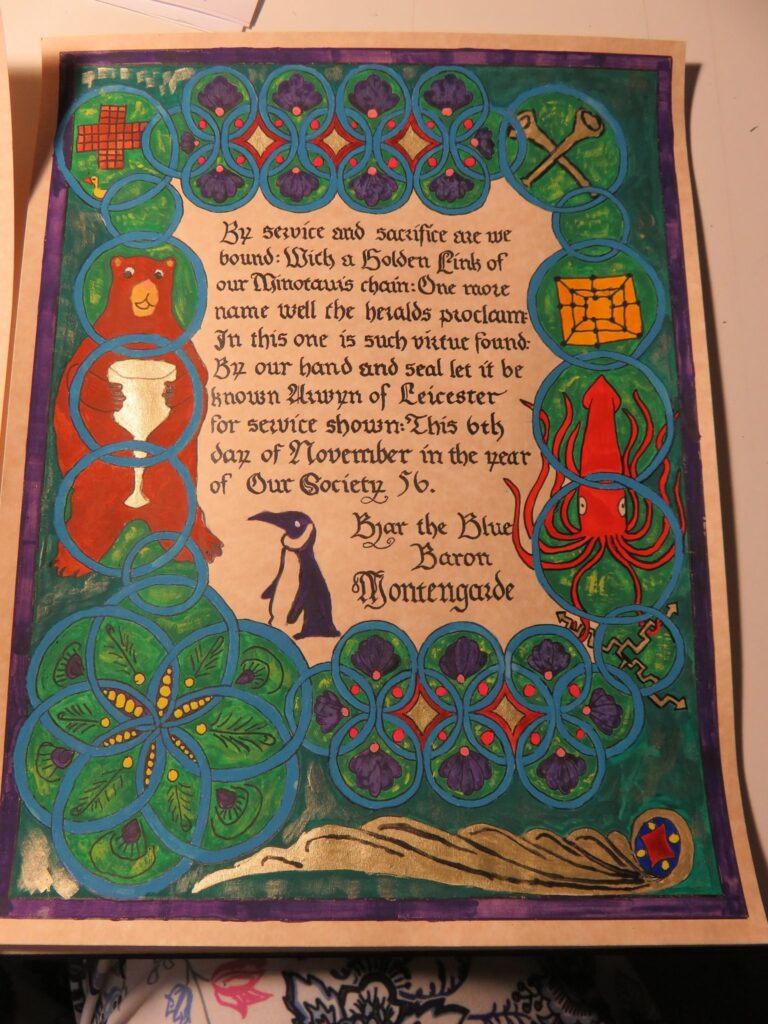 By service and sacrifice are we
bound: With a Golden Link of
our Minotaurs chain: One more
name well the heralds proclaim:
In this one is such virtue found:
By our hand and seal let it be
known Arwyn of Leicester
for service shown: This 6th
day of November in the year
of Our Society 56.
Bjar the Blue
Baron
Montengarde